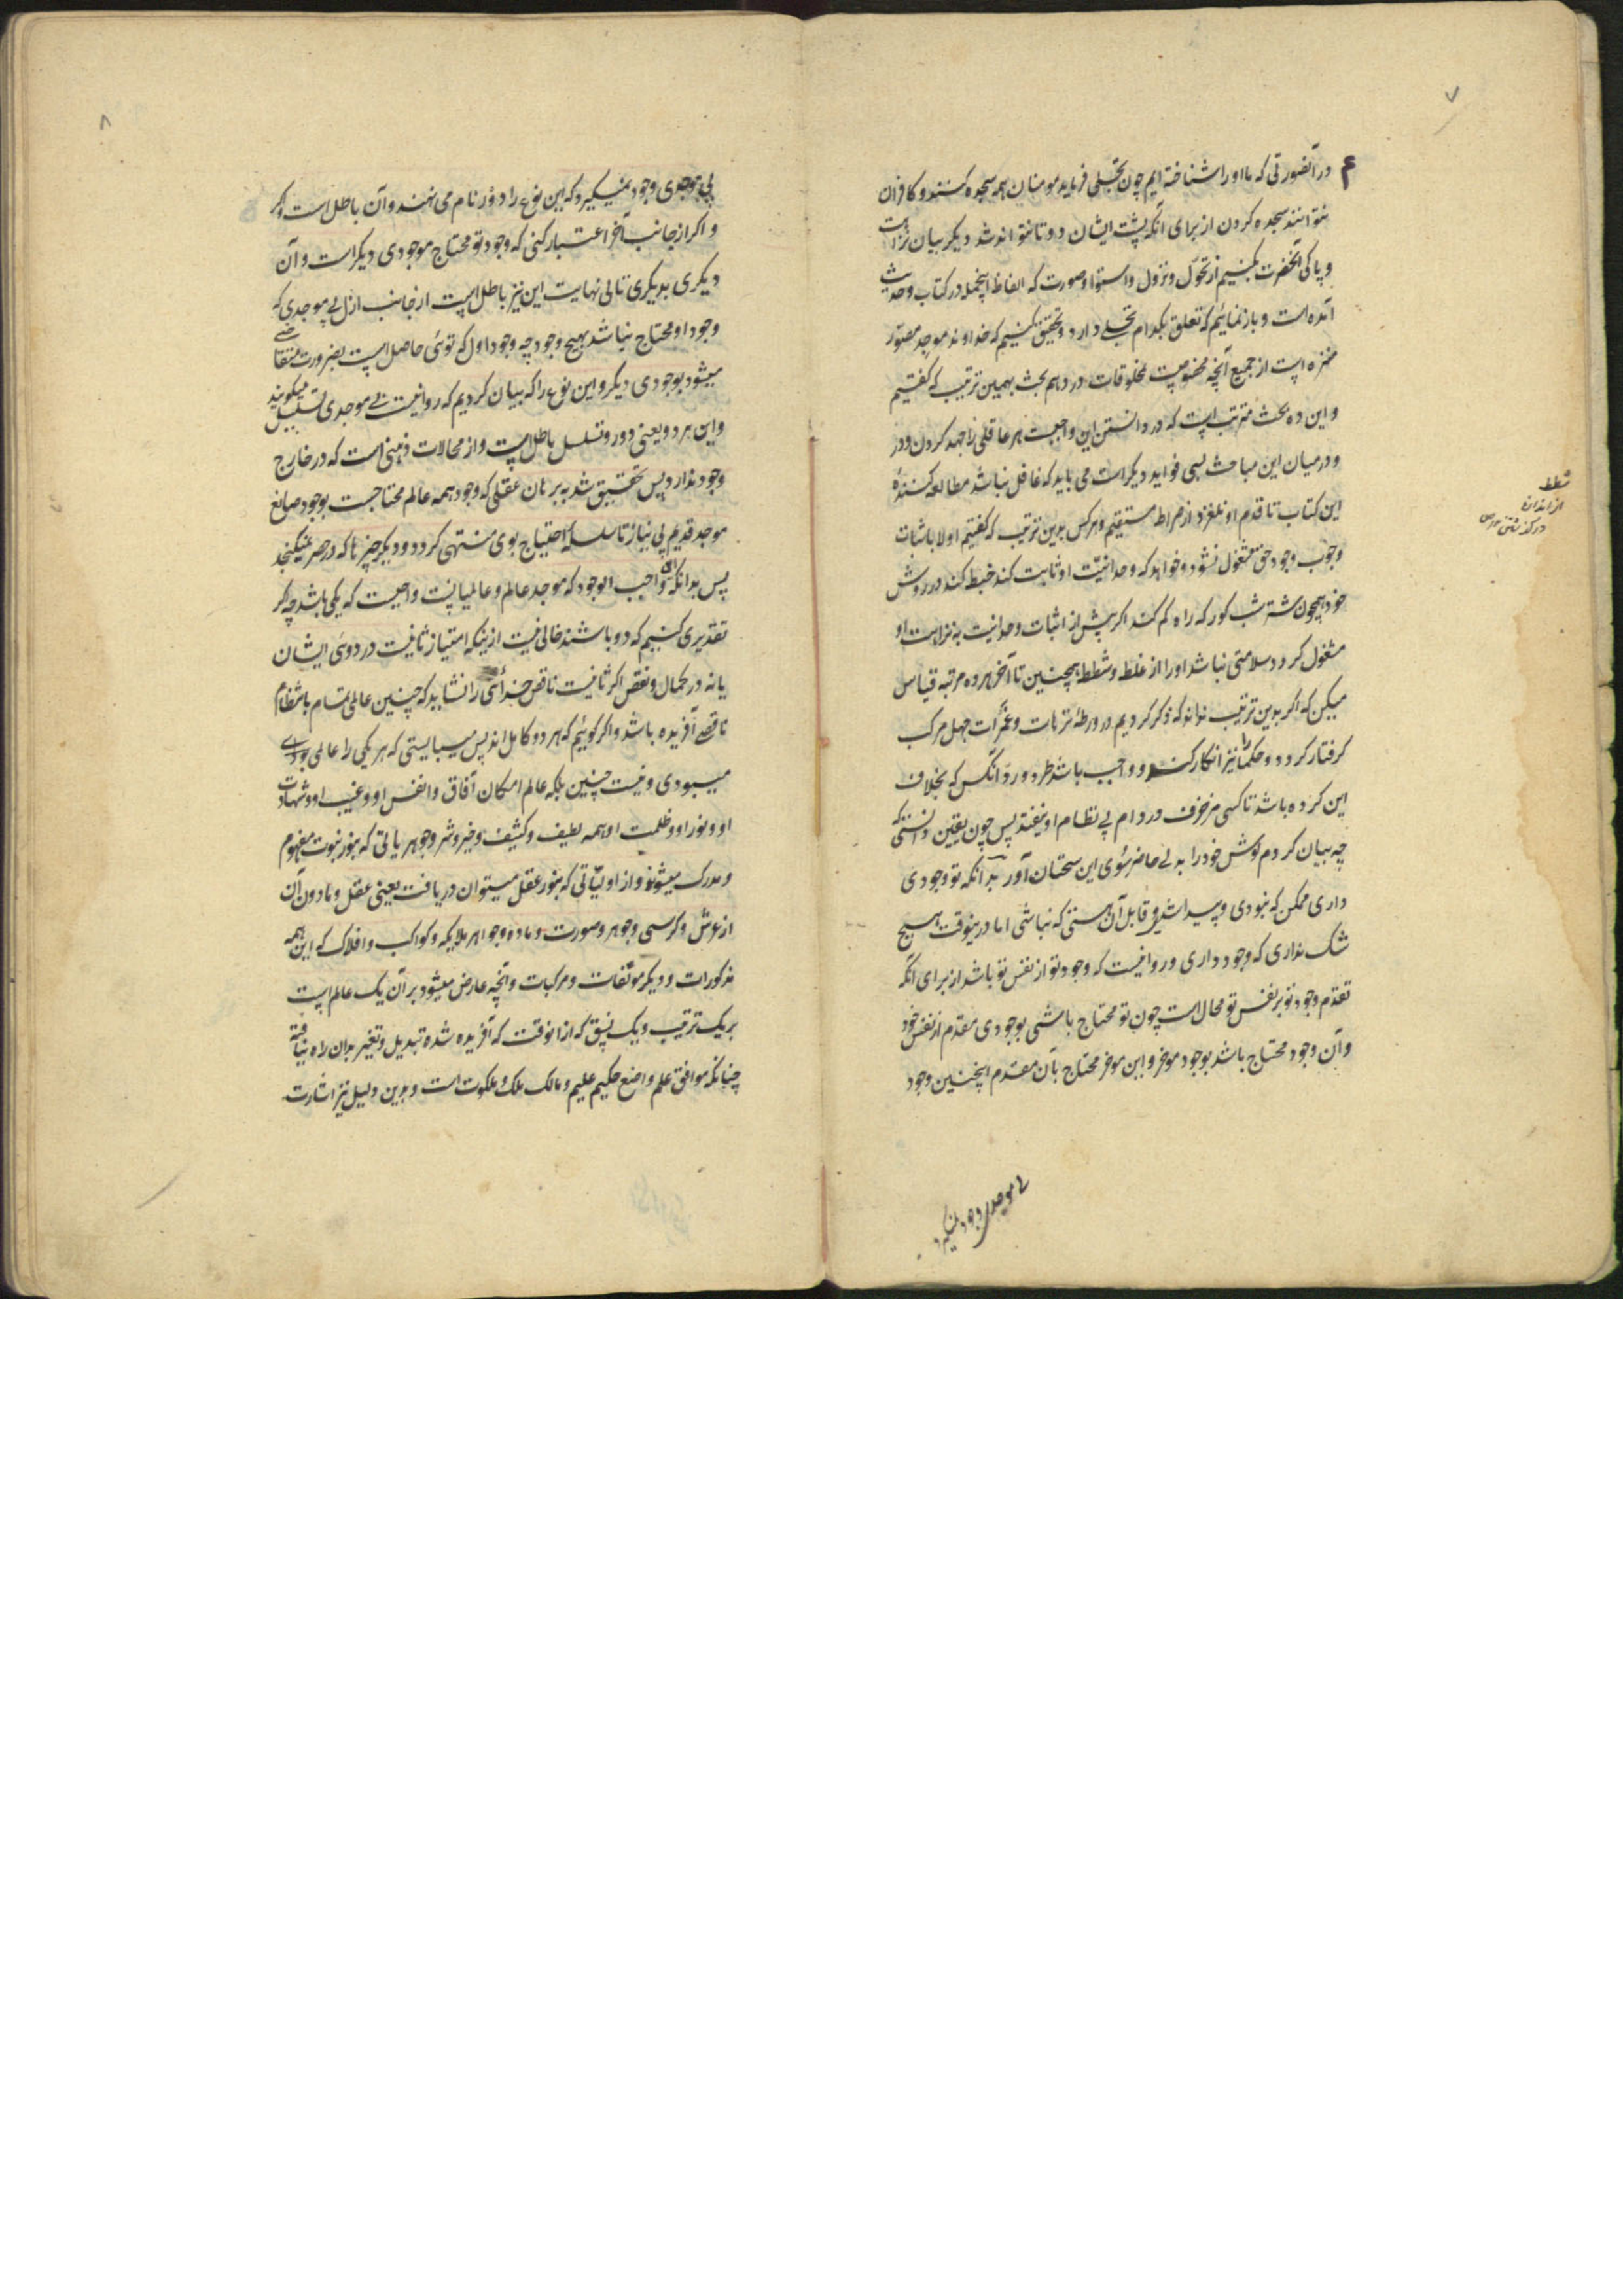 ۷
در آنصورتی که ما او را شناخته ایم چون تجلی فرماید مومنان همه سجده کنند و کافران
نتوانند سجده کردن از برای آنکه پشت ایشان دوتا نتواند شد دیگر بیان نزاهت
و پاکی آنحضرت بکنیم از تحول و نزول و استوا و صورت که الفاظ اینجمله در کتاب و حدیث
آمده است و باز نمائیم که تعلق بکدام تجلی دارد و تحقیق کنیم که خداوند موجد مصور
منزه است از جمیع آنچه مخصوصست بمخلوقات در دهم بحث بهمین ترتیب که گفتیم
و این ده بحث مترتب است که در دانستن این واجبست هر عاقلی را جهد کردن و در
و در میان این مباحث بسی فواید دیگر است می باید که غافل نباشد مطالعه کنندهٔ
این کتاب تا قدم او نلغزد از صراط مستقیم و هرکس بدین ترتیب که گفتیم اولا باثبات
وجوب وجود حق مشغول نشود و خواهد که وحدانیت او ثابت کند خبط کند در روش
خود همچون شتر شب کور که راه گم کند اگر پیش از اثبات وحدانیت به نزاهت او
مشغول گردد سلامتی نباشد او را از غلط و شطط همچنین تا آخر هر ده مرتبه قیاس
میکن که اگر بدین ترتیب نداند که ذکر کردیم در ورطهٔ ترهات و عثرات جهل مرکب
گرفتار گردد و حکما را نیز انکار کند و واجب باشد طرد و رد آنکس که بخلاف
این کرده باشد تا کسی مزخرف در دام بی نظام او نیفتد پس چون یقین دانستی که
چه بیان کردم گوش خود را به لی حاضر سوی این سخنان آور بدانکه تو وجودی
داری ممکن که نبودی و پیدا شدی و قابل آن هستی که نباشی اما درینوقت هیچ
شک نداری که وجود داری و روا نیست که وجود تو از نفس تو باشد از برای آنکه
تقدم وجود تو بر نفس تو محال است چون تو محتاج باشی بوجودی مقدم از نفس خود
و آن وجود محتاج باشد بوجود موخر و این موخر محتاج بآن مقدم اینچنین وجود
بی موجدی وجود نمیگیرد
شطط
از اندازه
درگذشتن
۸
بی موجدی وجود نمیگیرد که این نوع را دور نام می نهند و آن باطل است و گر
و اگر از جانب آخر اعتبار کنی که وجود تو محتاج موجودی دیگر است و آن
دیگری بدیگری تا لی نهایت این نیز باطل است از جانب ازل بی موجدی که
وجود او محتاج نباشد بهیچ وجود چه وجود اول که توئی حاصل است بضرورت متقاضی
میشود بوجودی دیگر و این نوع را که بیان کردیم که روا نیست بی موجدی تسلسل میگویند
و این هر دو یعنی دور و تسلسل باطل است و از محالات ذهنی است که در خارج
وجود ندارد پس تحقیق شد به برهان عقلی که وجود همه عالم محتاجست بوجود صانع
موجد قدیم بی نیاز تا سلسلهٔ احتیاج بوی منتهی گردد و دیگر چیزها که در حصر نمیگنجد
پس بدانکه واجب الوجود که موجد عالم و عالمیانست واجبست که یکی باشد چه گر
تقدیری کنیم که دو باشند خالی نیست ازینکه امتیاز ثابتست در دوئی ایشان
یا نه در کمال و نقص اگر ثابتست ناقص خدائی را نشاید که چنین عالمی تمام با نظام
ناقصی آفریده باشد و اگر گوییم که هر دو کامل اند پس میبایستی که هر یکی را عالمی بودی
میبودی و نیست چنین بلکه عالم امکان آفاق و انفس او و غیب او و شهادت
او و نور او و ظلمت او همه لطیف و کثیف و خیر و شر و جوهریاتی که بنور نبوت مفهوم
و مدرک میشوند و از اولیاتی که بنور عقل میتوان دریافت یعنی عقل و مادون آن
از عرش و کرسی و جوهر و صورت و ماده و جواهر ملایکه و کواکب و افلاک که این همه
مذکورات و دیگر مولفات و مرکبات و آنچه عارض میشود بر آن یک عالم است
بر یک ترتیب و یک نسق که از آنوقت که آفریده شده تبدیل و تغیر بدان راه نیافته
چنانکه موافق علم واضع حکیم علیم و مالک ملک و ملکوت است و بدین دلیل نیز اشارت